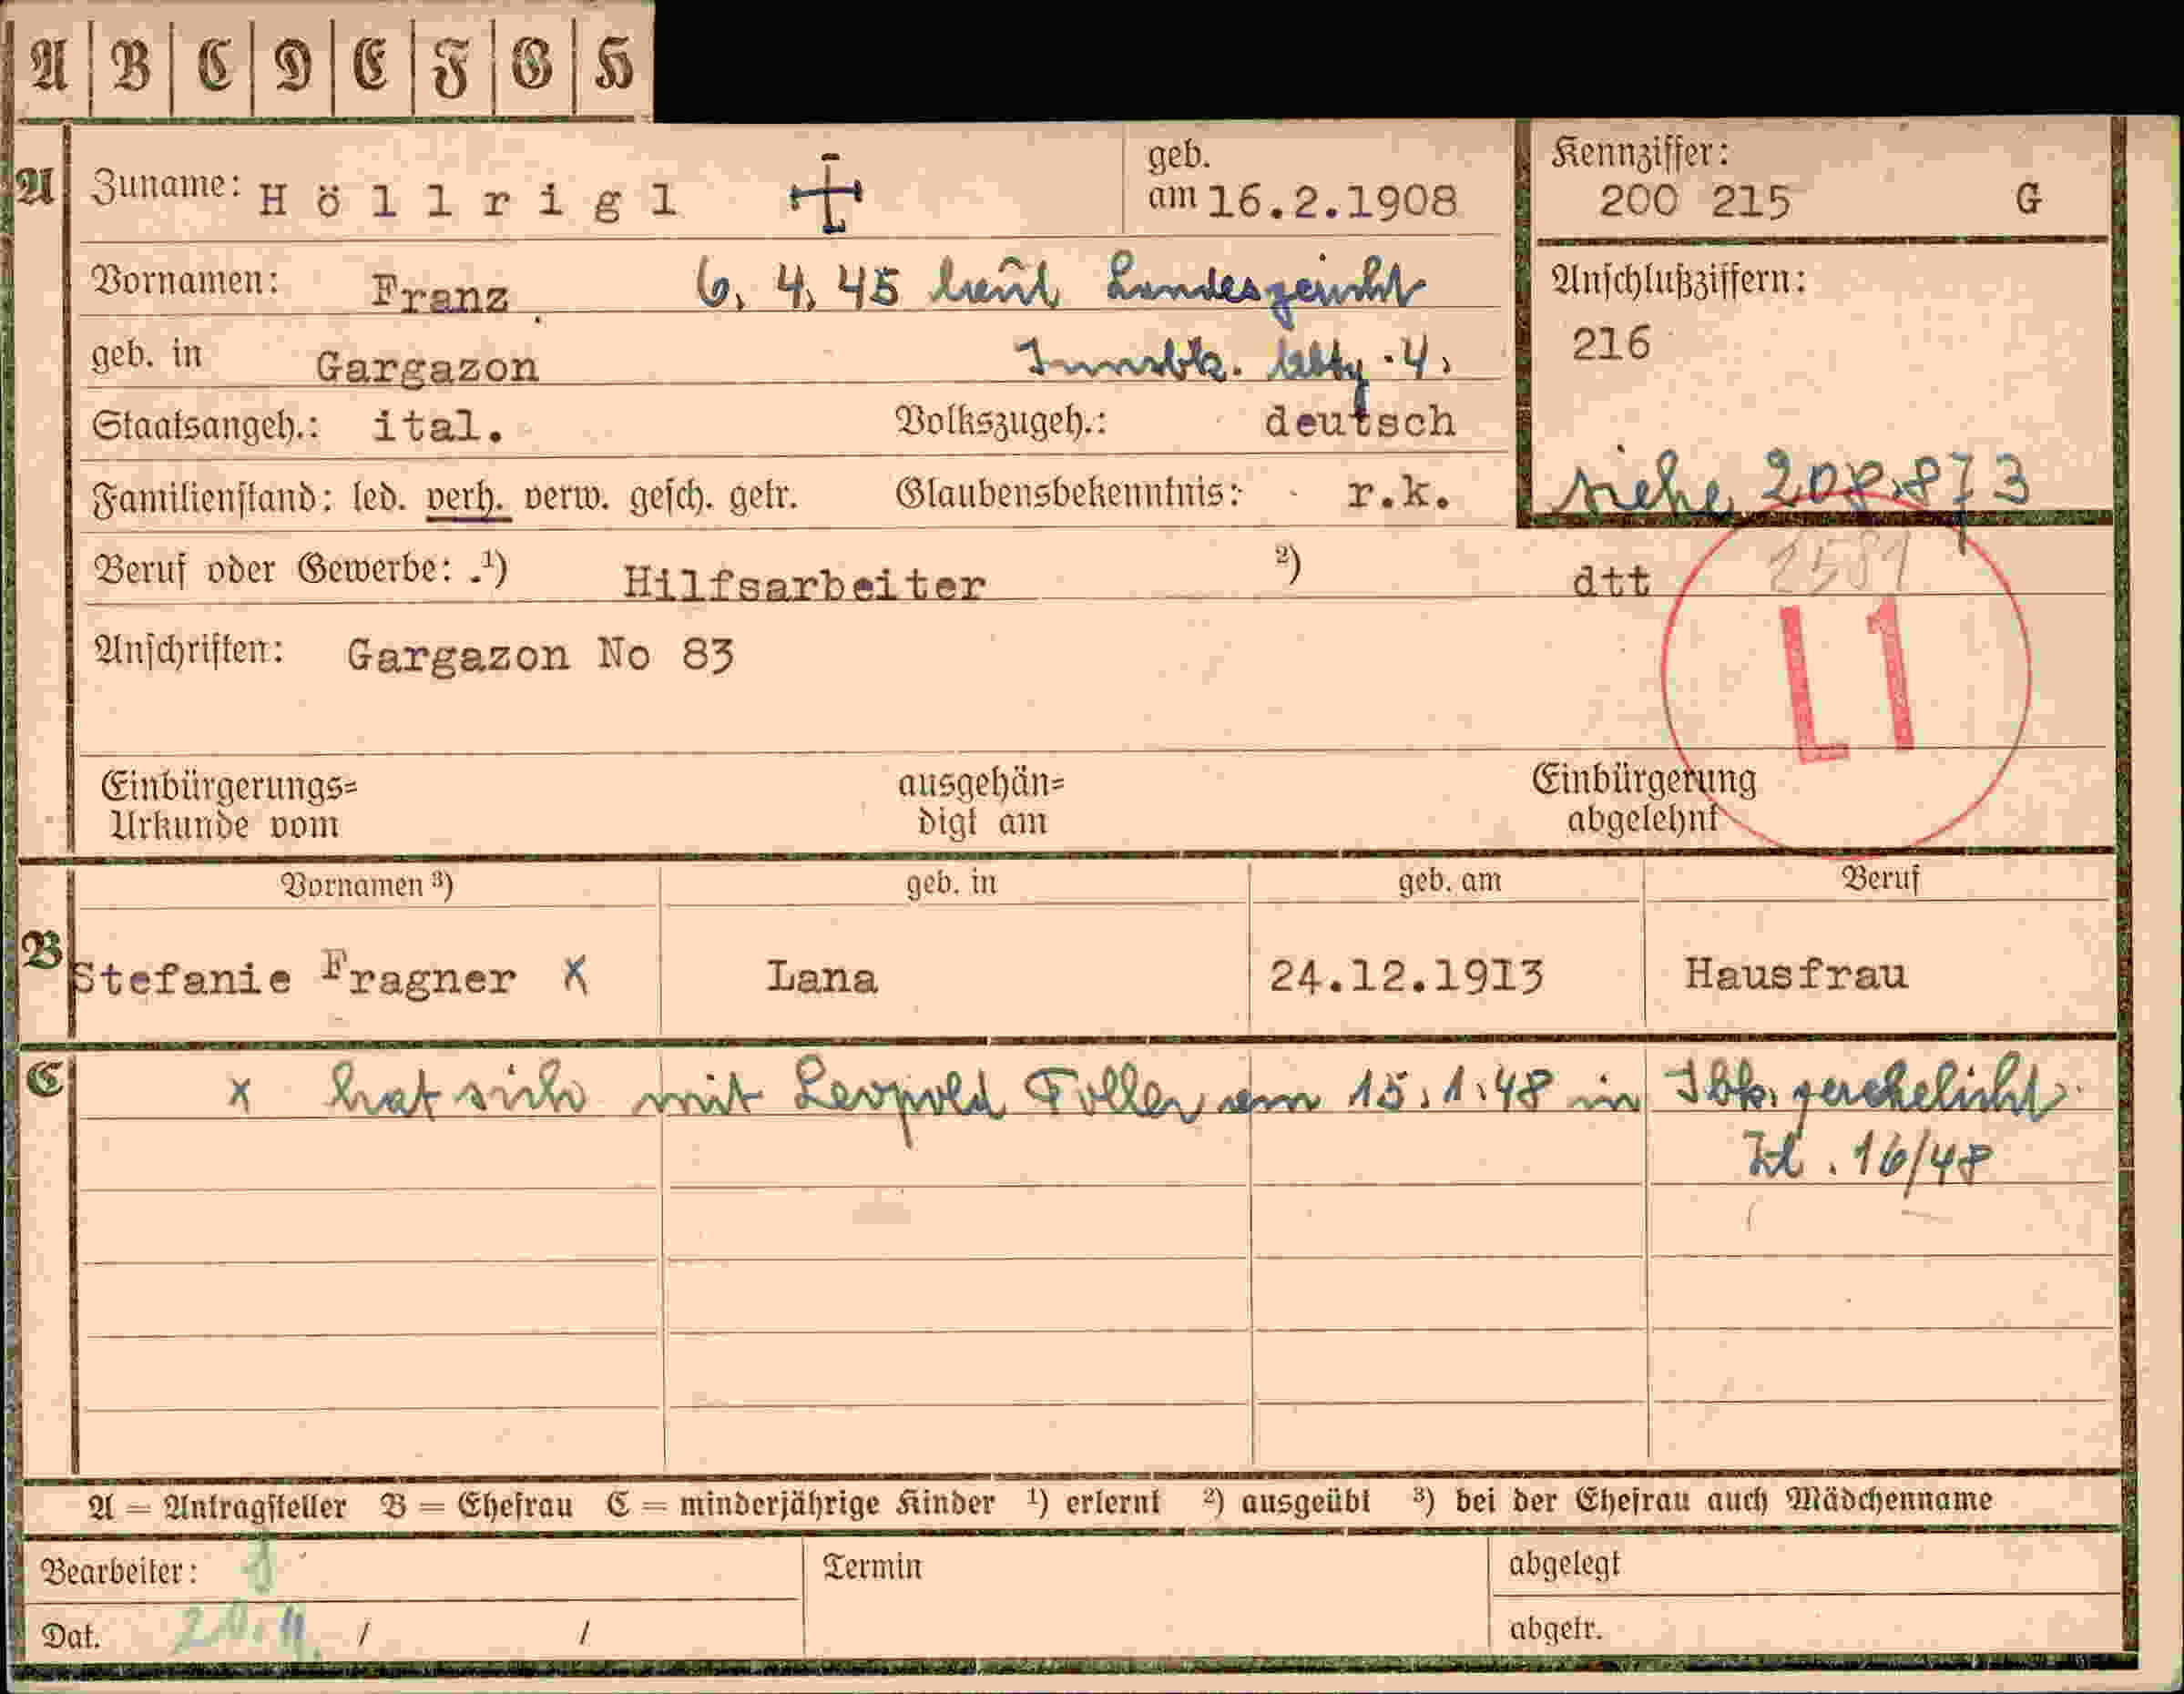 A B C D E F G H
A Zuname: Höllrigl geb. am 16.2.1908 Kennziffer: 200 215 G
Vornamen: Franz 6. 4. 45 laut Landesgericht
Anschlußziffern:
216
geb. in Gargazon Innsbk. Abtg. 4.
Staatsangeh.: ital. Volkszugeh.: deutsch
Familienstand: led. verh. verw. gesch. getr. Glaubensbekenntnis: r.k.
siehe 208.873
Beruf oder Gewerbe: ¹) Hilfsarbeiter ²) dtt
2581
L1
Anschriften: Gargazon No 83
Einbürgerungs=
Urkunde vom
ausgehän=
digt am
Einbürgerung
abgelehnt
Vornamen ³) geb. in geb. am Beruf
B Stefanie Fragner x Lana 24.12.1913 Hausfrau
C x hat sich mit Leopold Foller am 15.1.48 in Ibk. verehelicht
Zl. 16/48
A = Antragsteller B = Ehefrau C = minderjährige Kinder ¹) erlernt ²) ausgeübt ³) bei der Ehefrau auch Mädchenname
Bearbeiter: Termin abgelegt
Dat. / / abgetr.